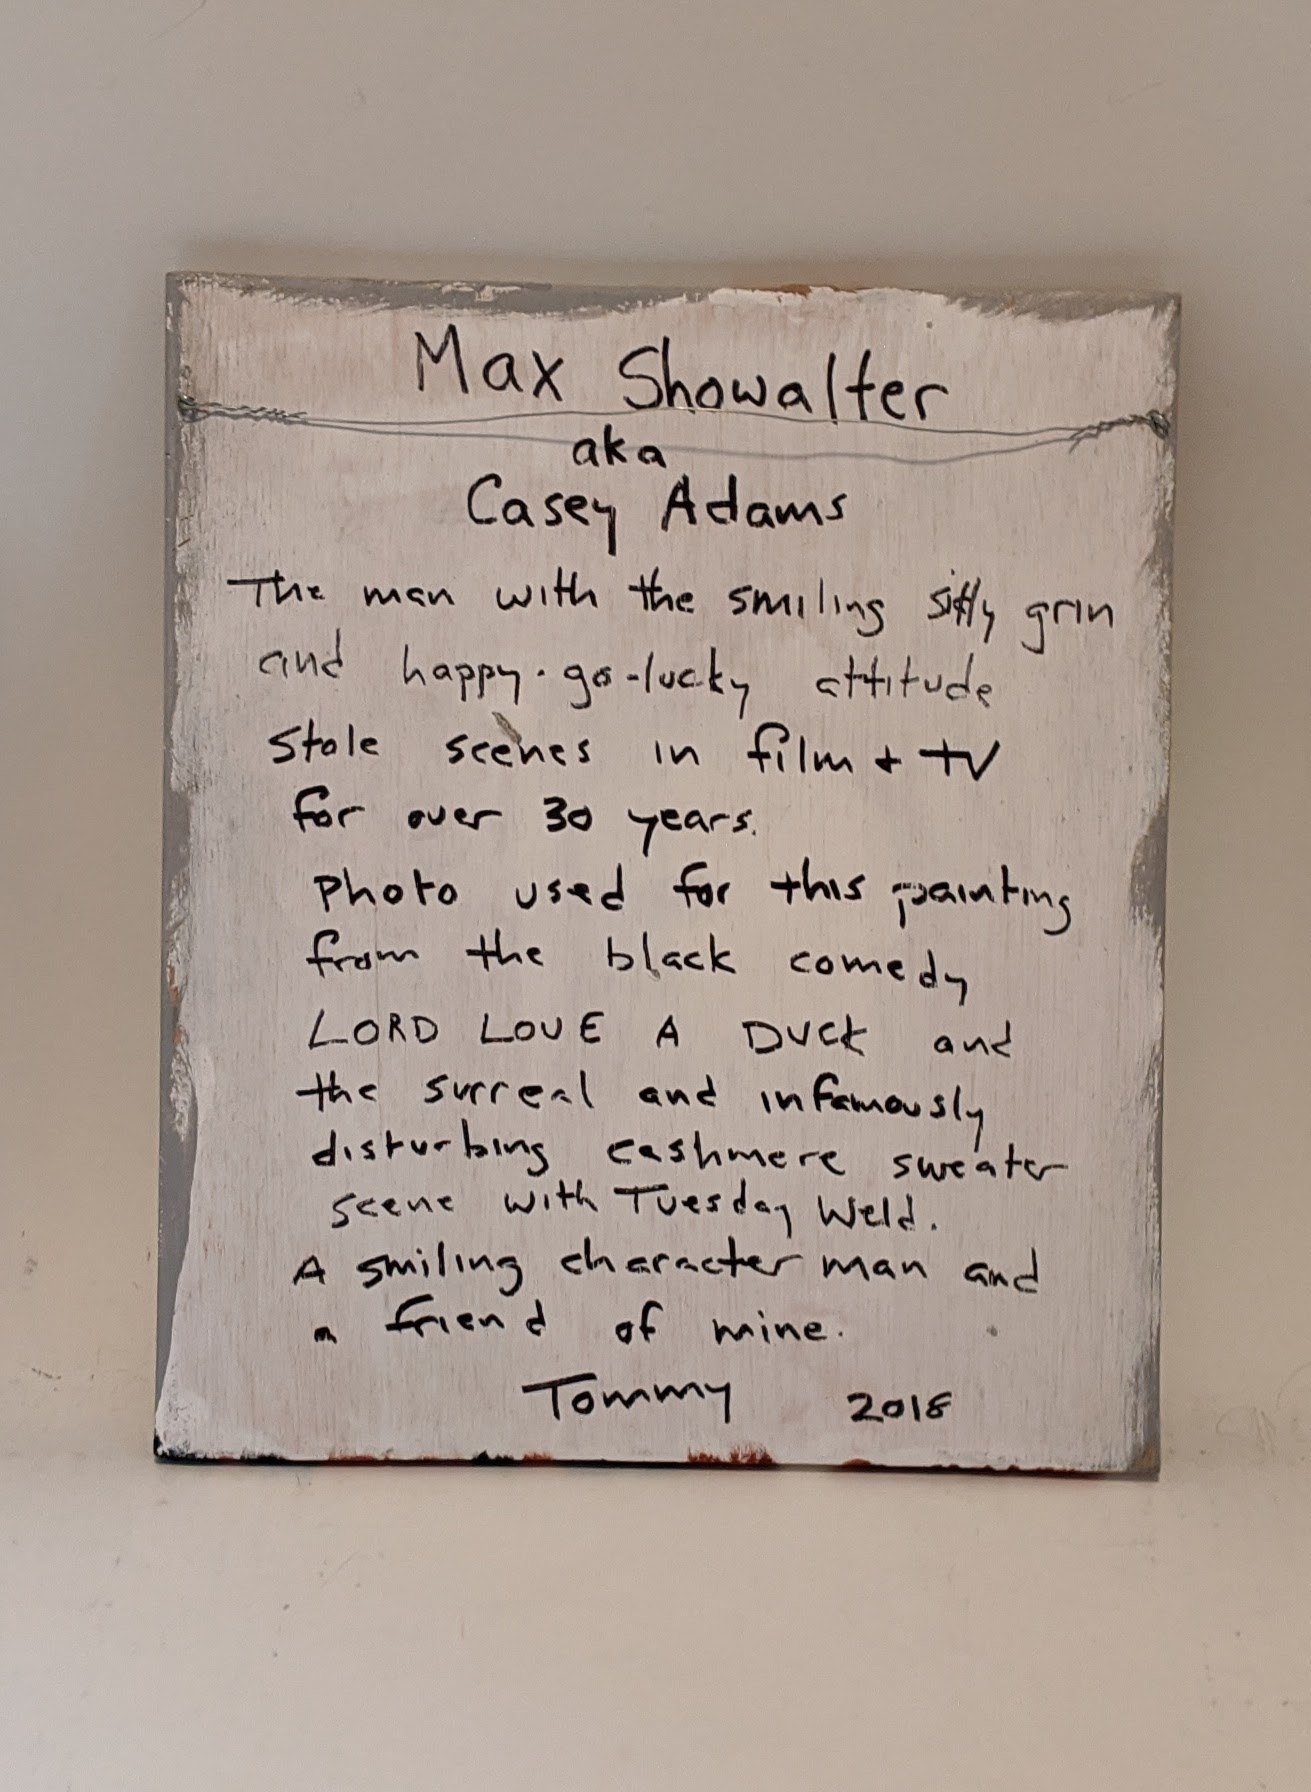 Max Showalter
aka
Casey Adams
The man with the smiling silly grin
and happy-go-lucky attitude
stole scenes in film + TV
for over 30 years.
Photo used for this painting
from the black comedy
LORD LOVE A DUCK and
the surreal and infamously
disturbing cashmere sweater
scene with Tuesday Weld.
A smiling character man and
a friend of mine.
Tommy 2018